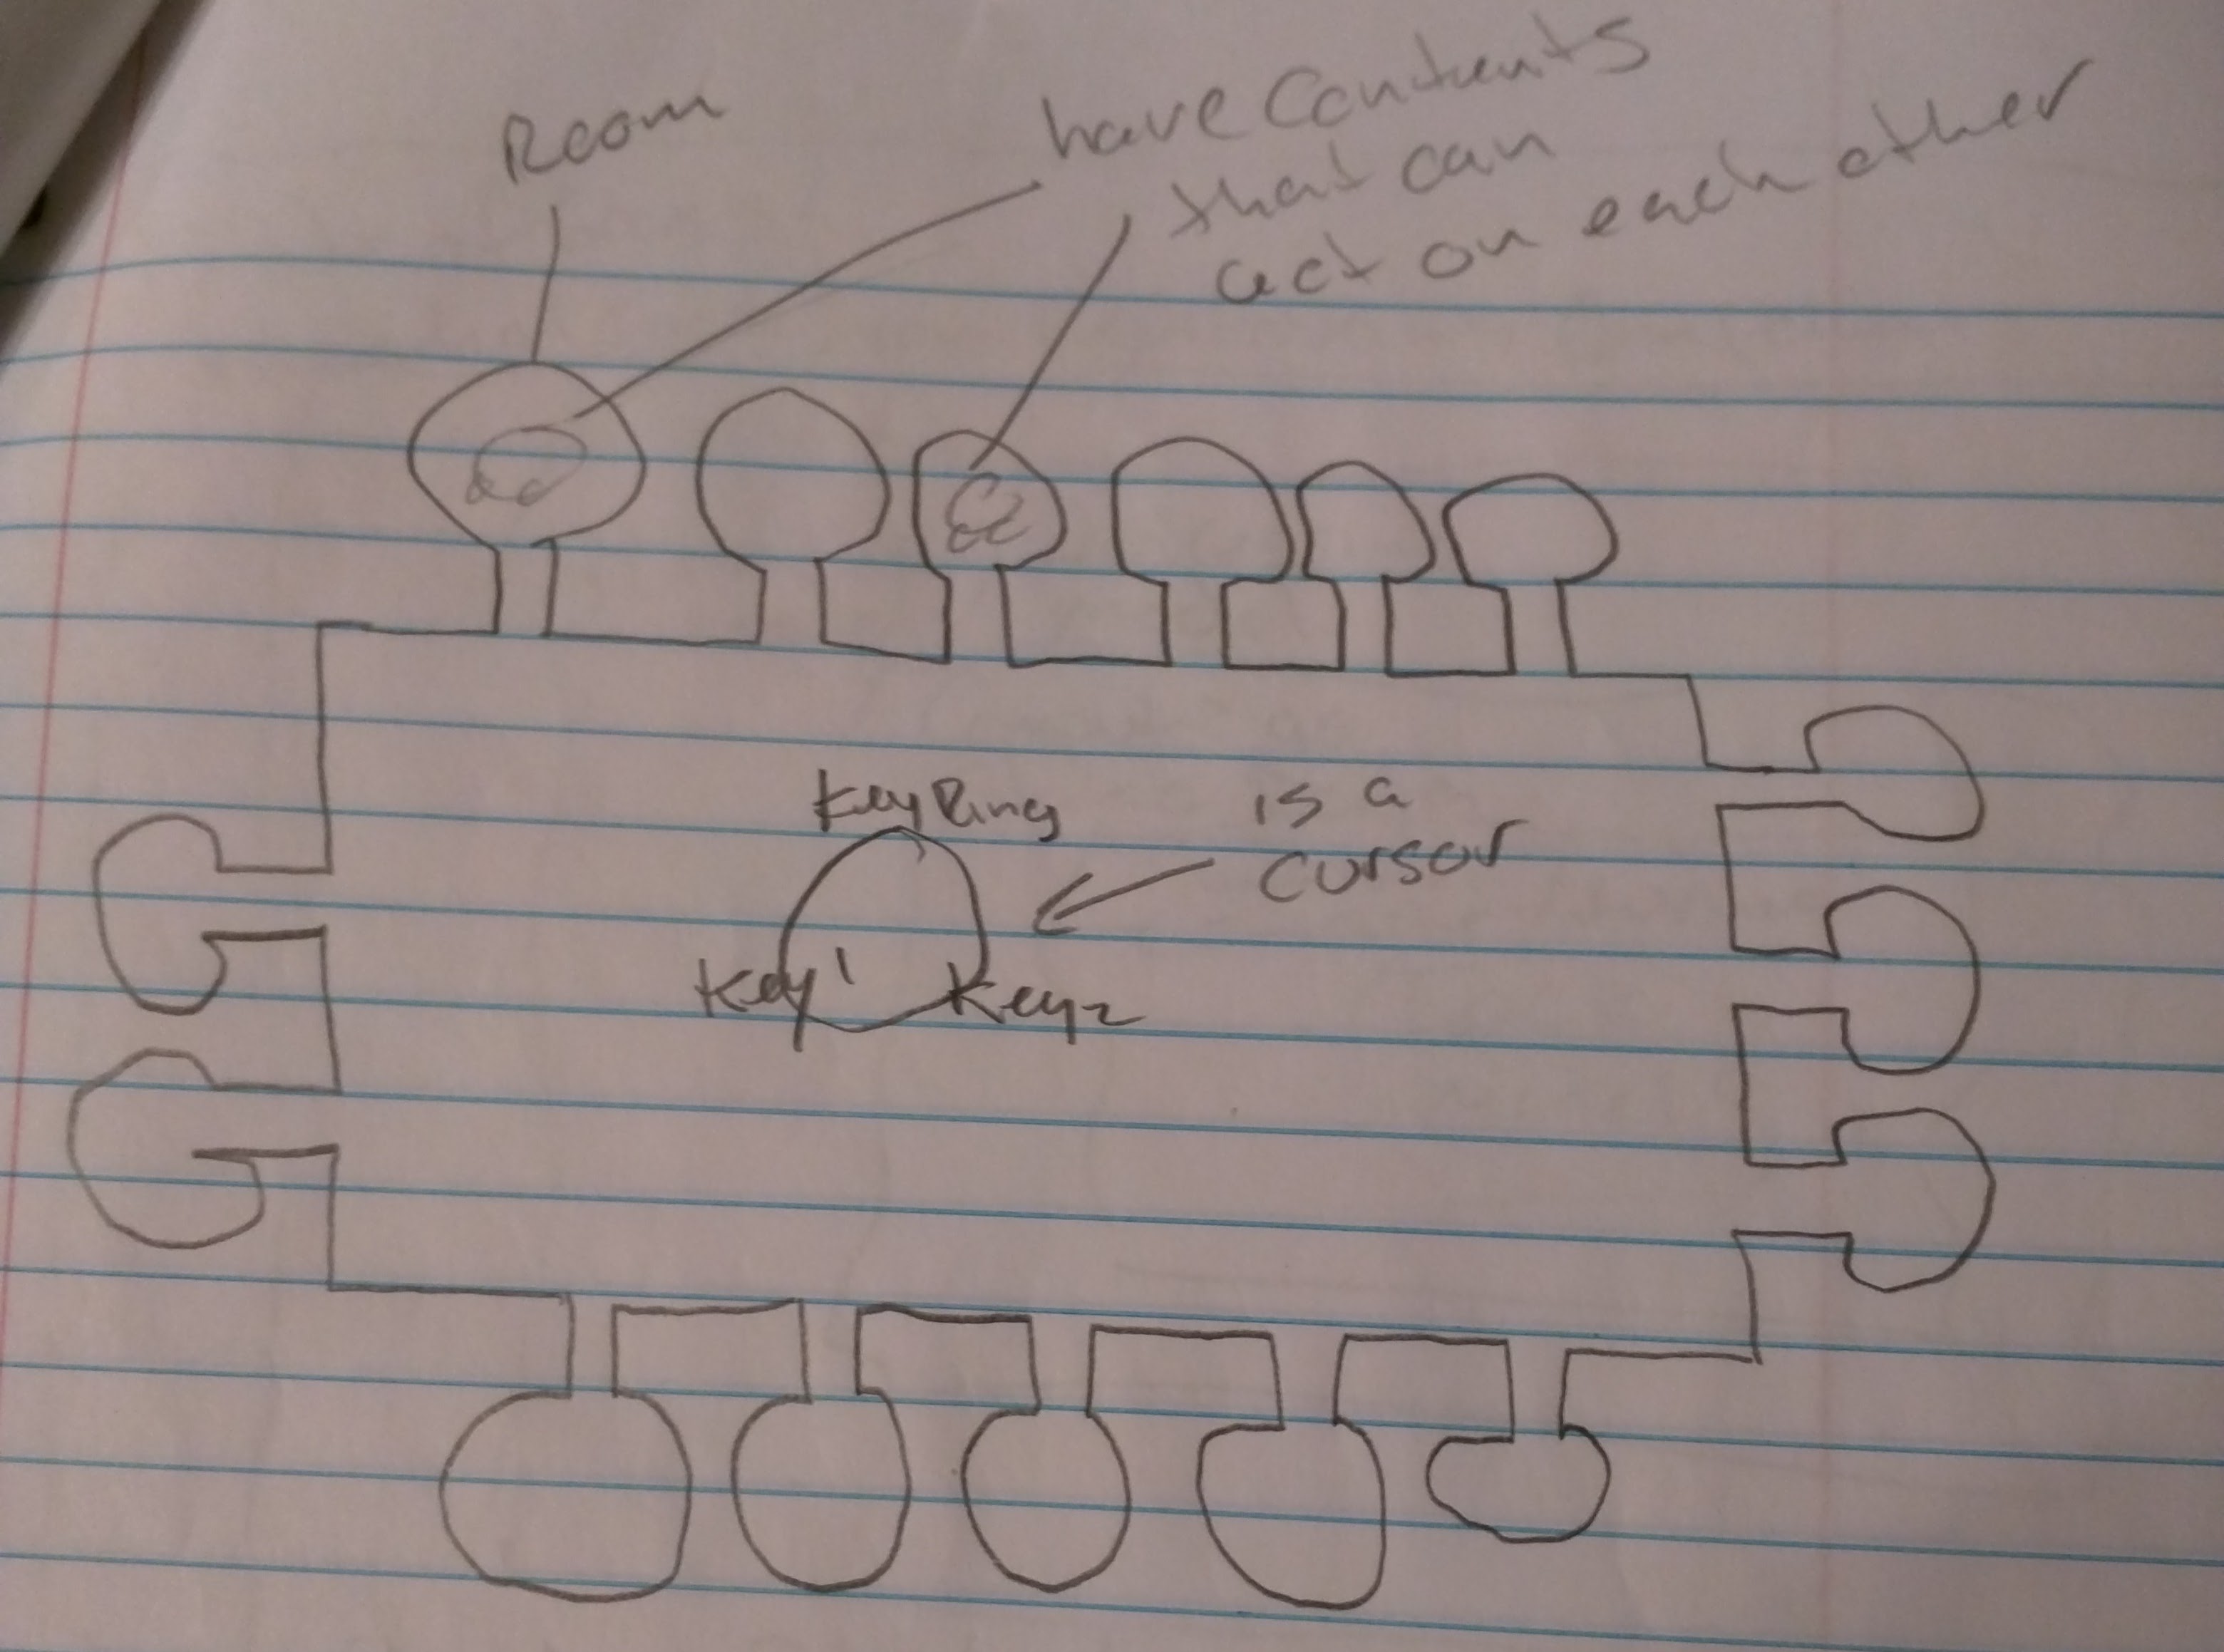 Room
have Contents
that can
act on each other
KeyRing
is a
cursor
Key1
Key2